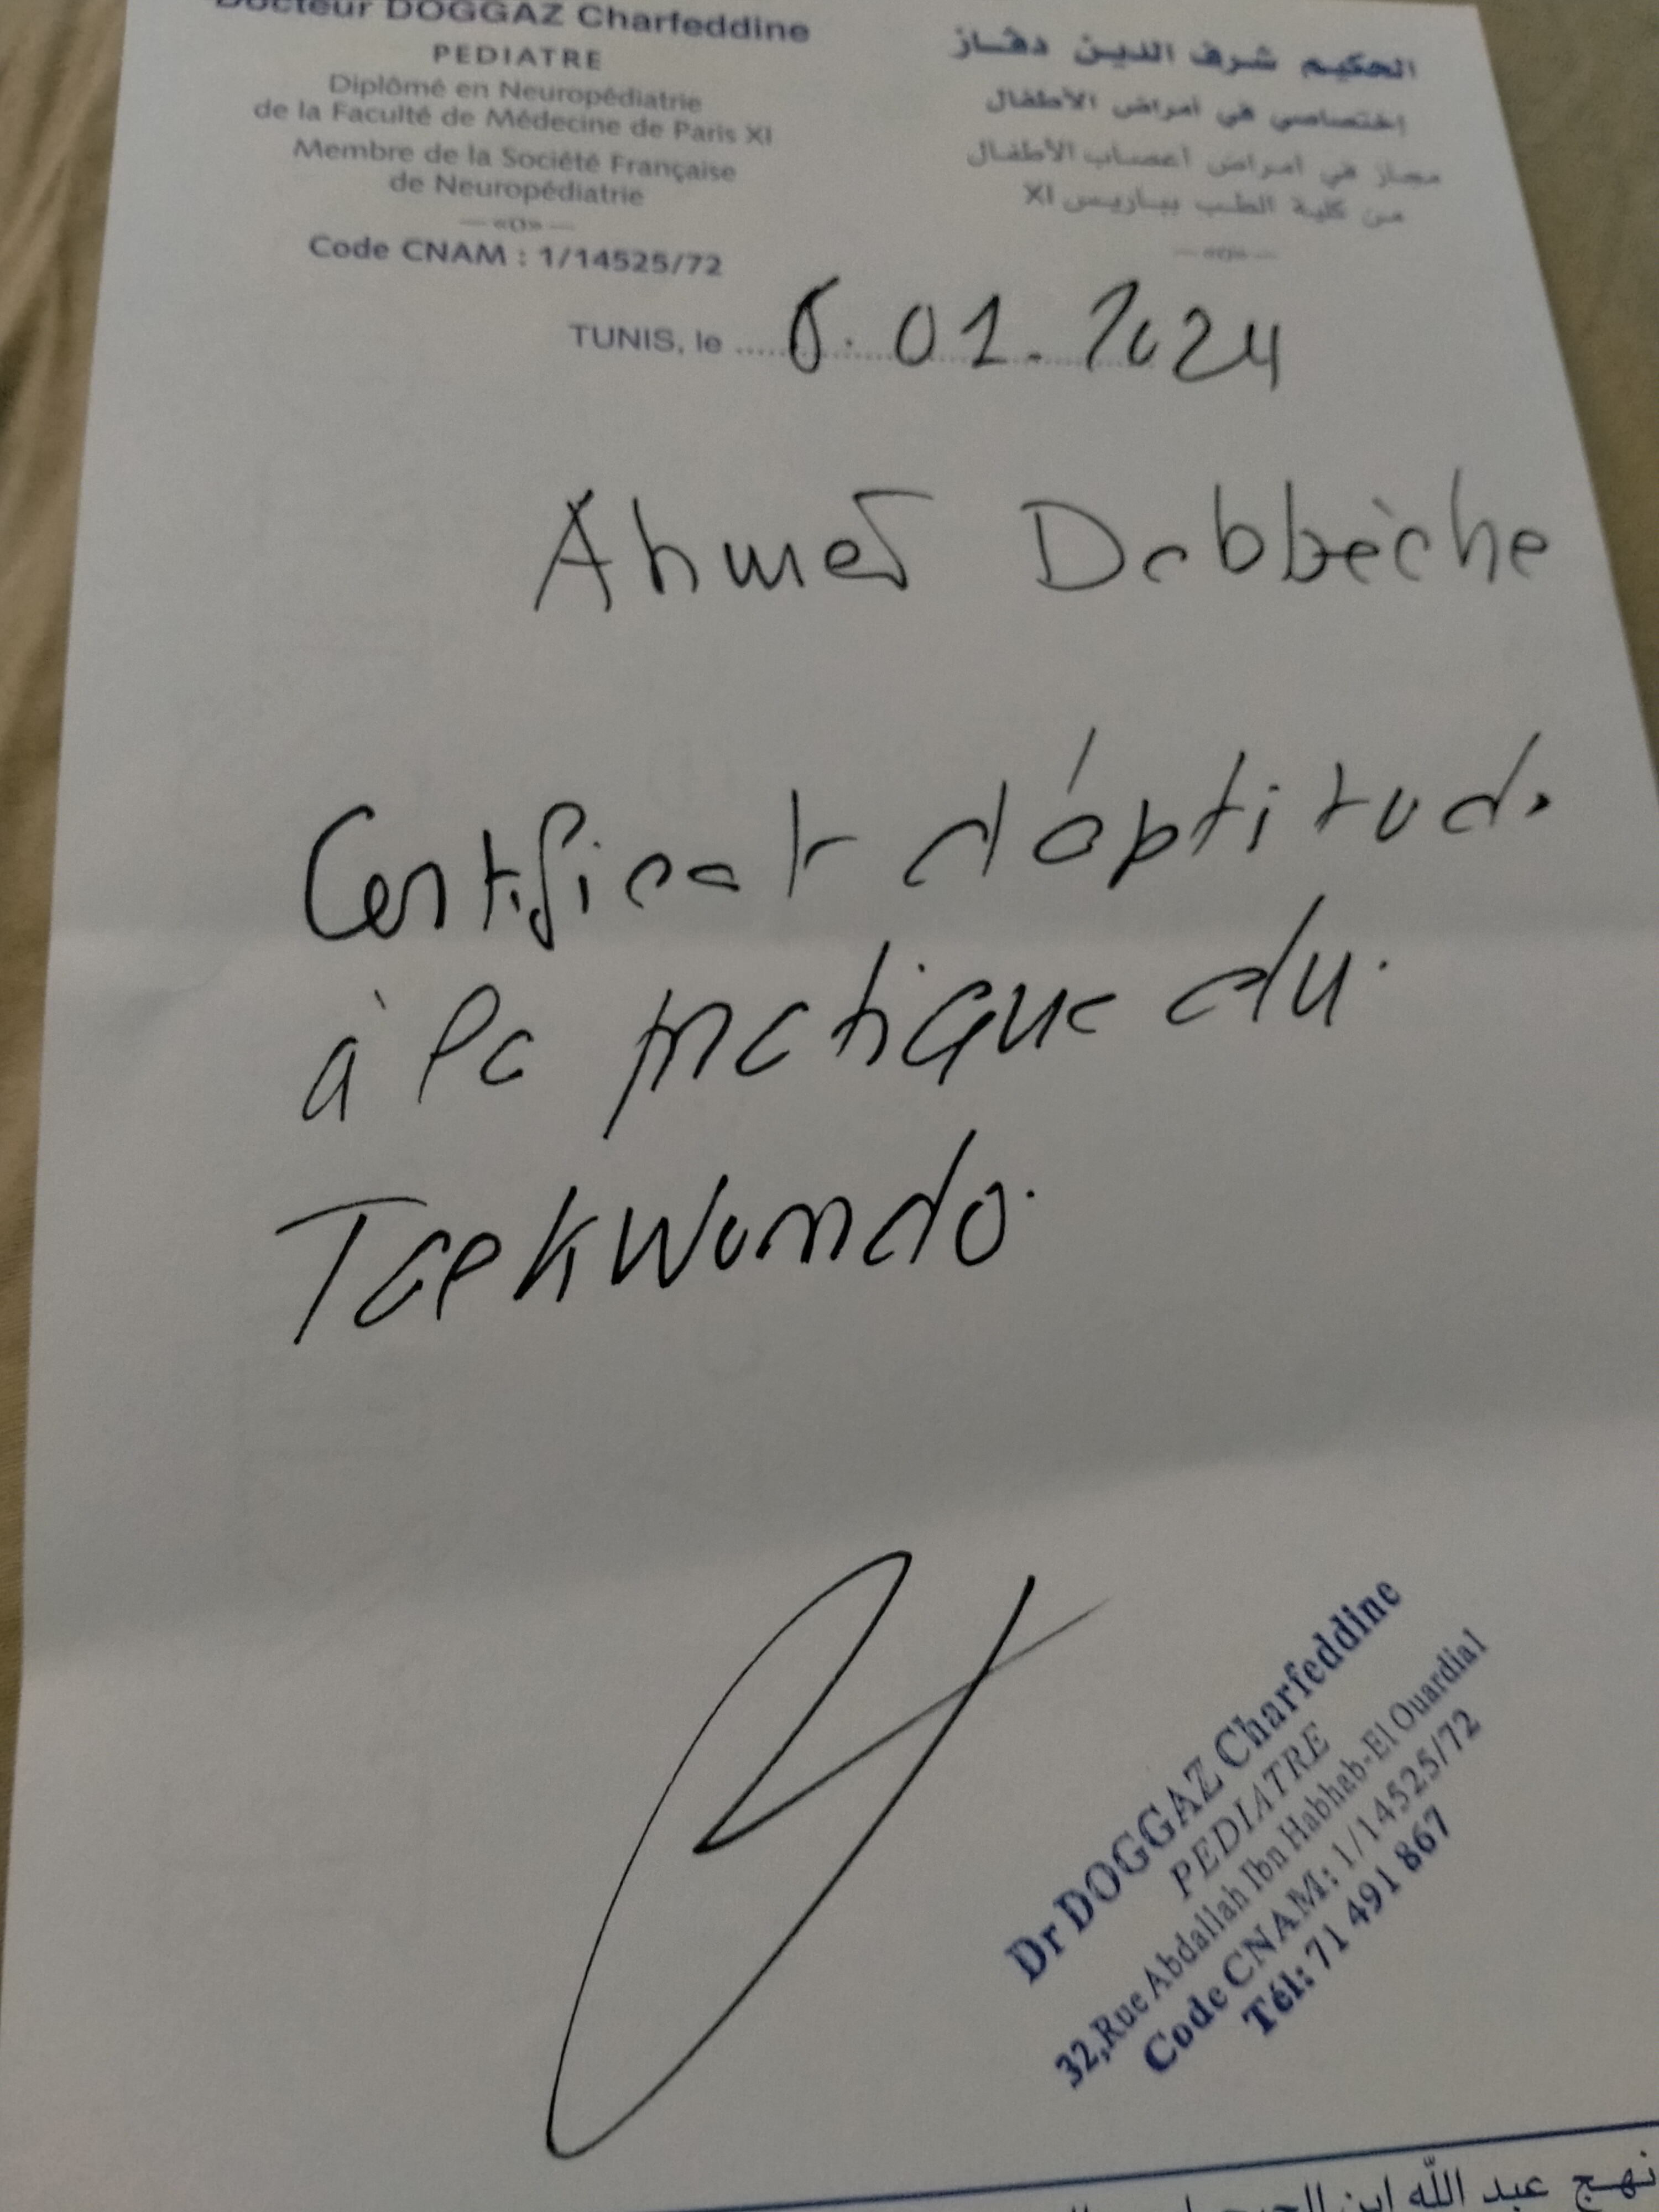 Docteur DOGGAZ Charfeddine
PEDIATRE
Diplômé en Neuropédiatrie
de la Faculté de Médecine de Paris XI
Membre de la Société Française
de Neuropédiatrie
—«O»—
Code CNAM : 1/14525/72
الحكيم شرف الدين دقاز
إختصاصي في أمراض الأطفال
مجاز في أمراض أعصاب الأطفال
من كلية الطب بباريس XI
—«O»—
TUNIS, le 6.01.2024
Ahmed Dabbèche
Certificat d'aptitude
à la pratique du
Taekwondo.
Dr DOGGAZ Charfeddine
PEDIATRE
32,Rue Abdallah Ibn Habhab-El Ouardia1
Code CNAM: 1/14525/72
Tél: 71 491 867
نهج عبد الله ابن